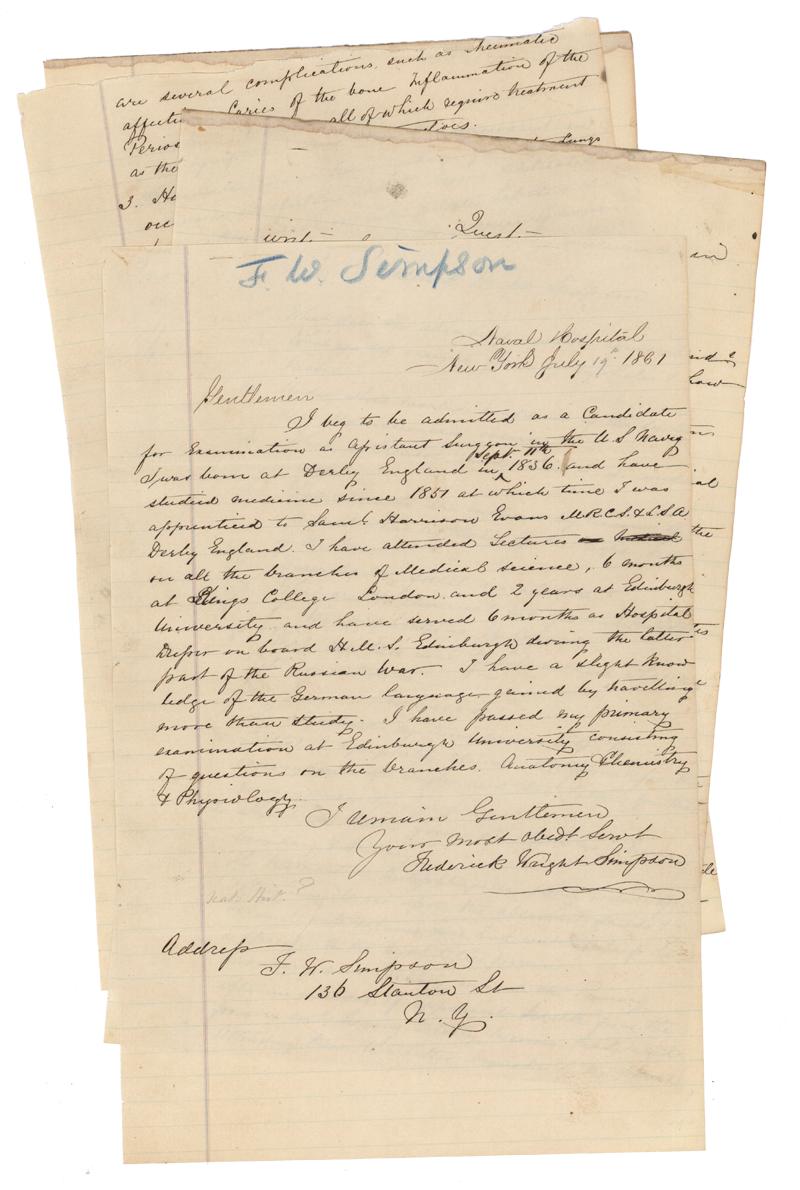 are several complications, such as rheumatic
affecti Caries of the bone Inflammation of the
Perios all of which require treatment
as the
3. H
lungs
Quest.—
F. W. Simpson
Naval Hospital
New York July 19th 1861
Gentlemen
I beg to be admitted as a Candidate
for Examination as Assistant Surgeon in the U S Navy
Sept. 11th
I was born at Derby England in ^ 1836. and have
studied medicine since 1851 at which time I was
apprenticed to Saml. Harrison Evans M.R.C.S. & L.S.A
Derby England. I have attended Lectures
on all the branches of Medical science, 6 months
at Kings College London and 2 years at Edinburgh
University and have served 6 months as Hospital
Dresser on board H.M.S. Edinburgh during the latter
part of the Russian War. I have a slight know
ledge of the German language gained by travelling
more than study. I have passed my primary
examination at Edinburgh University consisting
of questions on the branches. Anatomy Chemistry
& Physiology.
I remain Gentlemen
Your most obedt Servt
Frederick Wright Simpson
Nat. Hist.?
Address
F. W. Simpson
136 Stanton St
N. Y.